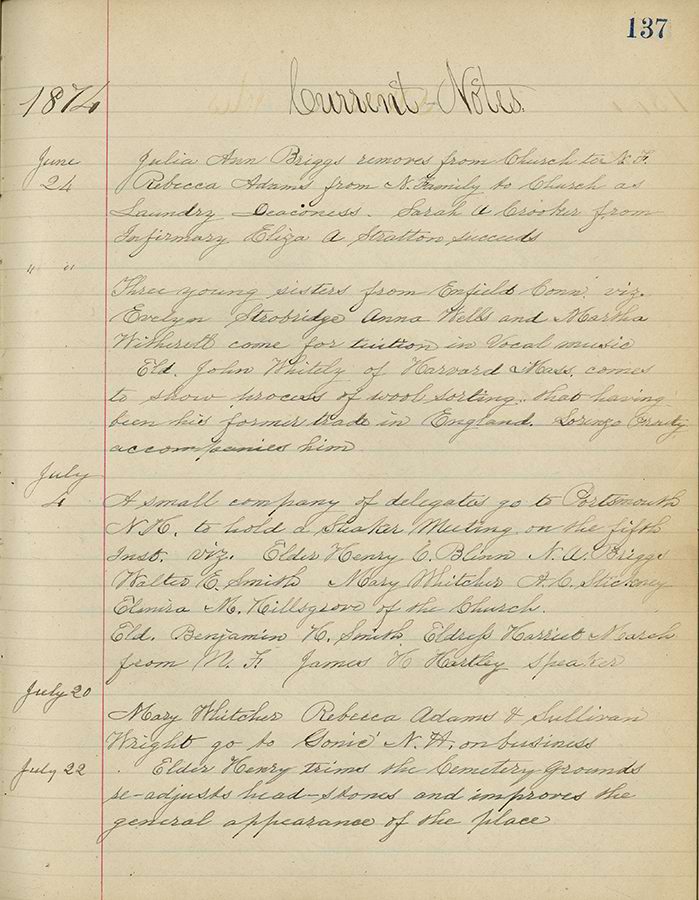 137
1874 Current Notes.
June Julia Ann Briggs removes from Church to N. F.
24 Rebecca Adams from N. Family to Church as
Laundry Deaconess. Sarah A Crooker from
Infirmary Eliza A Stratton succeeds
" " Three young sisters from Enfield Conn. viz.
Evelyn Strobridge Anna Wells and Martha
Witherell come for tuition in Vocal music
Eld. John Whitely of Harvard Mass. comes
to show process of wool sorting. that having
been his former trade in England. Lorenzo
accompanies him
July
4 A small company of delegates go to Portsmouth
N.H. to hold a Quaker Meeting on the fifth
Inst. viz. Elder Henry C. Blinn N.A. Briggs
Walter E. Smith Mary Whitcher A.C. Stickney
Elmira M. Hillsgrove of the Church.
Eld. Benjamin H. Smith Eldress Harriet March
from N. F. James H Hartley speaker
July 20
Mary Whitcher Rebecca Adams & Sullivan
Wright go to Gonic N.H. on business
July 22 Elder Henry trims the Cemetery grounds
re-adjusts head-stones and improves the
general appearance of the place